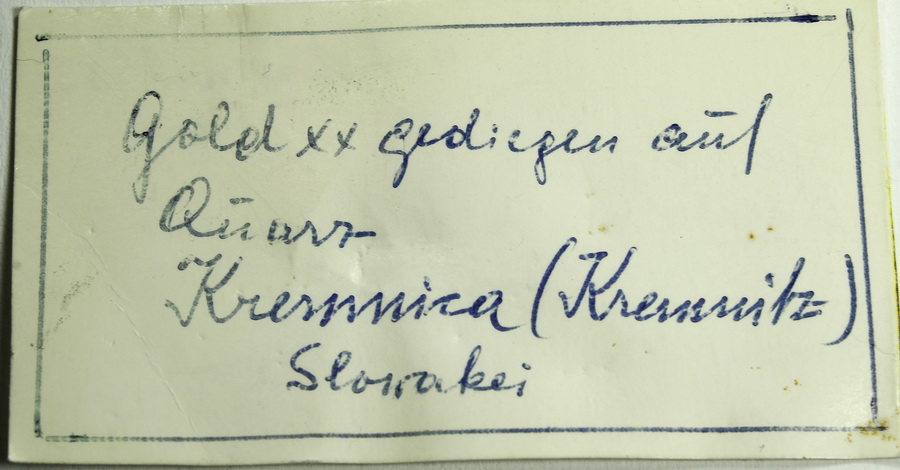 Gold xx gediegen auf
Quarz
Kremnica (Kremnitz)
Slowakei